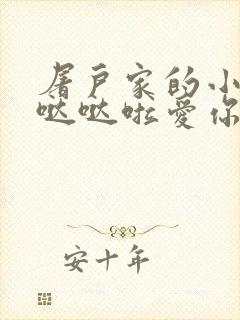 屠户家的小
哒哒啦爱你
安十年